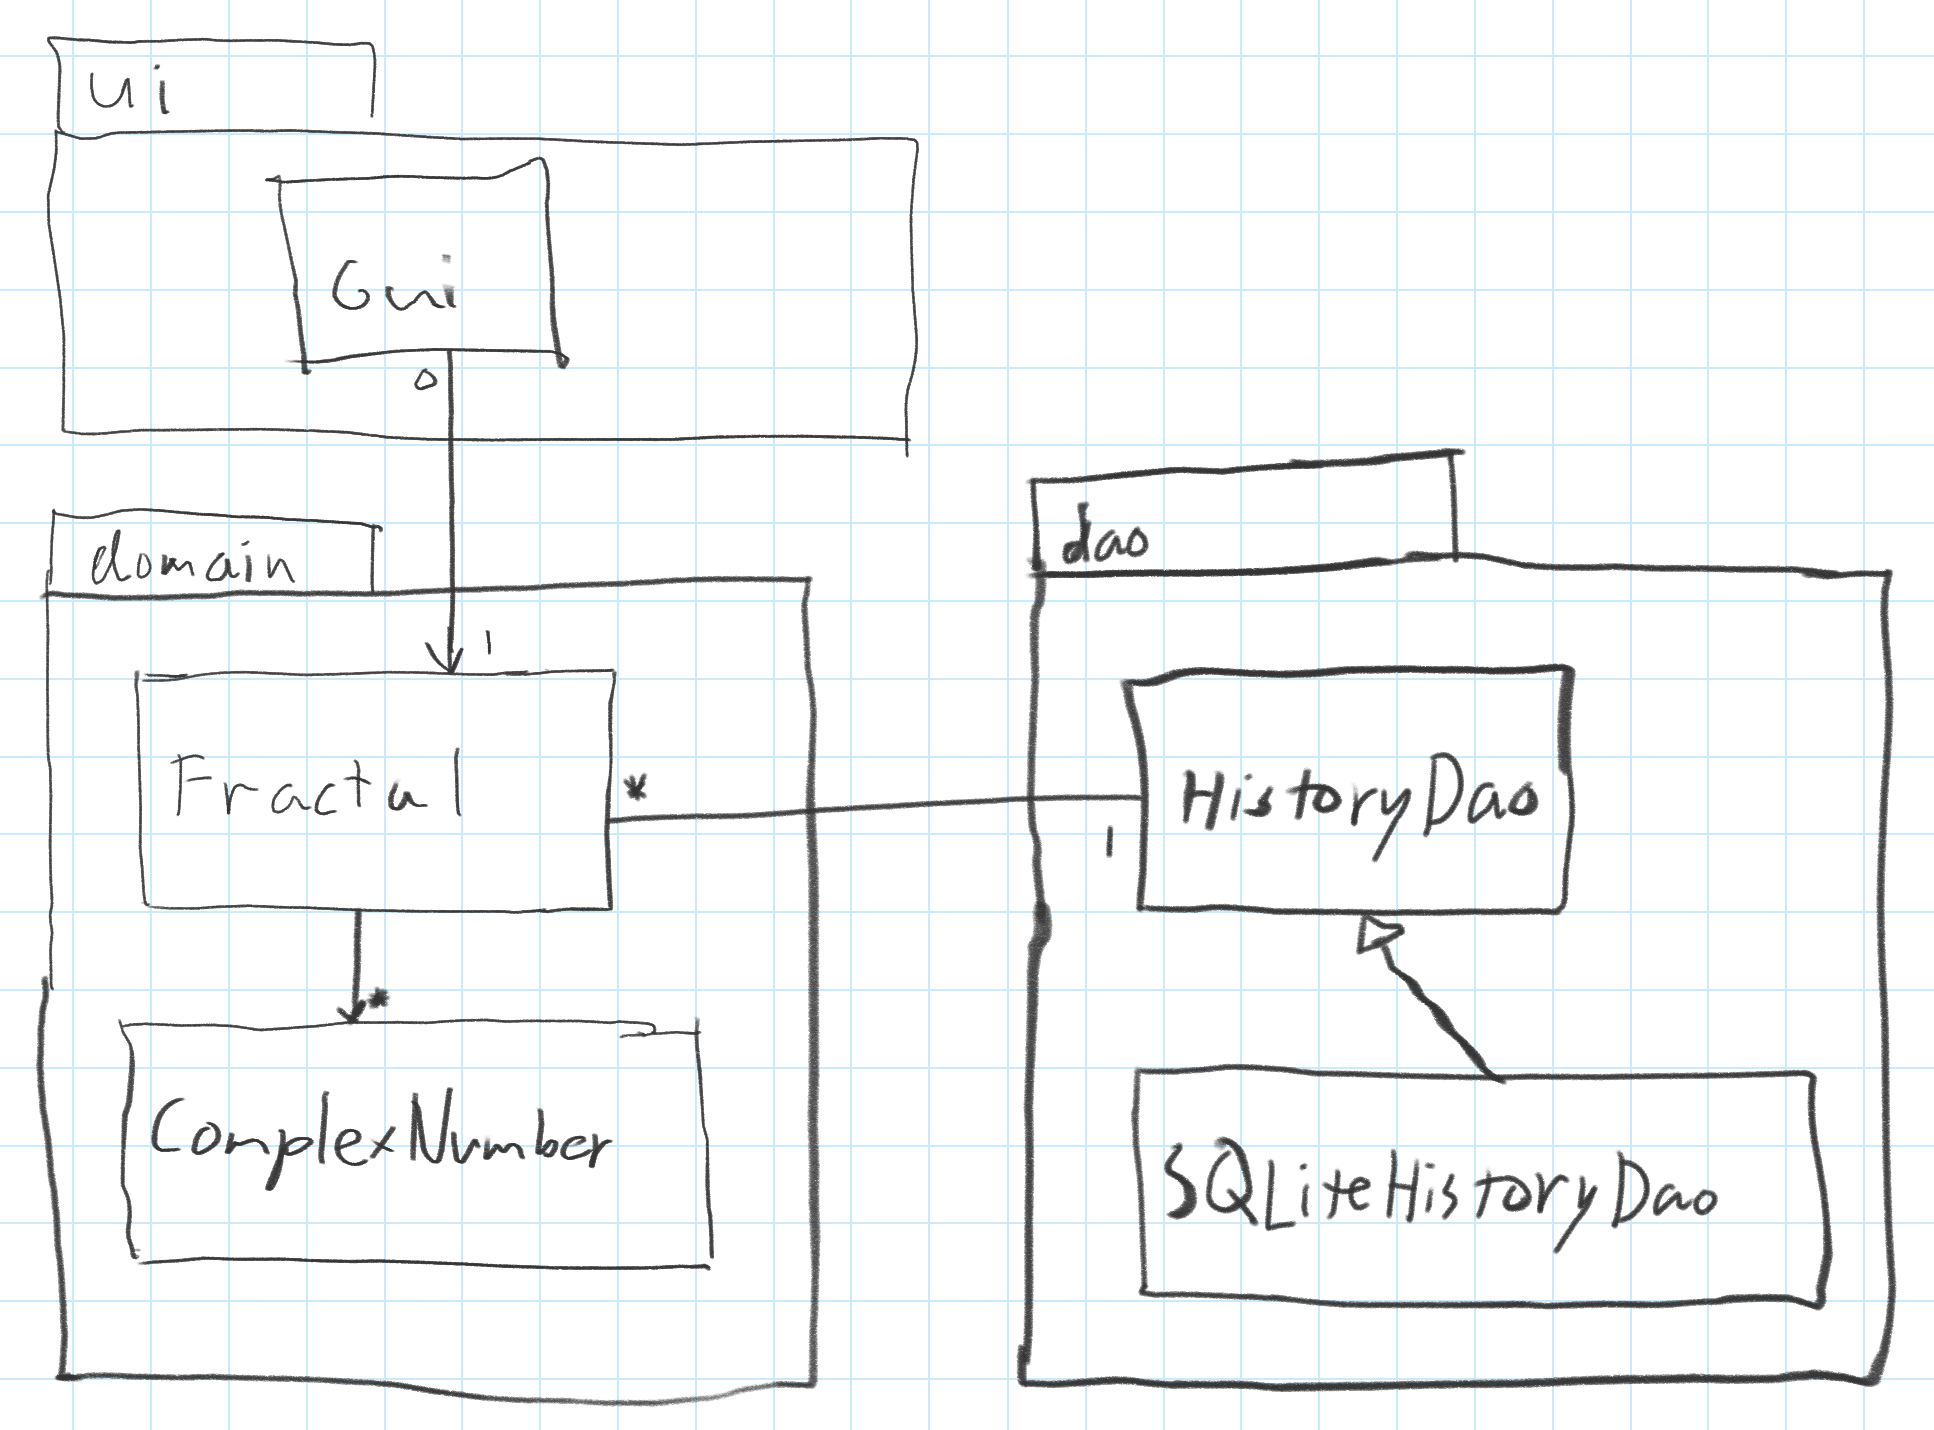 ui
Gui
0
1
domain
Fractal
*
*
ComplexNumber
dao
HistoryDao
1
SQLiteHistoryDao